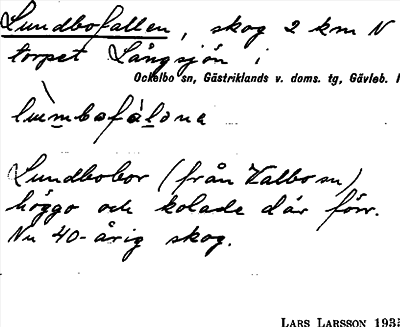 Lundbofallen, skog 2 km N
torpet Långsjön i
Ockelbo sn, Gästriklands v. doms. tg, Gävleb. l
Lundbobor (från Valbo sn)
höggo och kolade där förr.
Nu 40-årig skog.
LARS LARSSON 1935